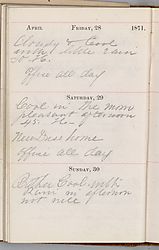 APRIL FRIDAY, 28 1871.
Cloudy & Cool
little rain
Office all day
SATURDAY, 29
Cool in the morn
pleasant afternoon
45.
home
Office all day
SUNDAY, 30
Rather Cool with
Rain in afternoon
not nice